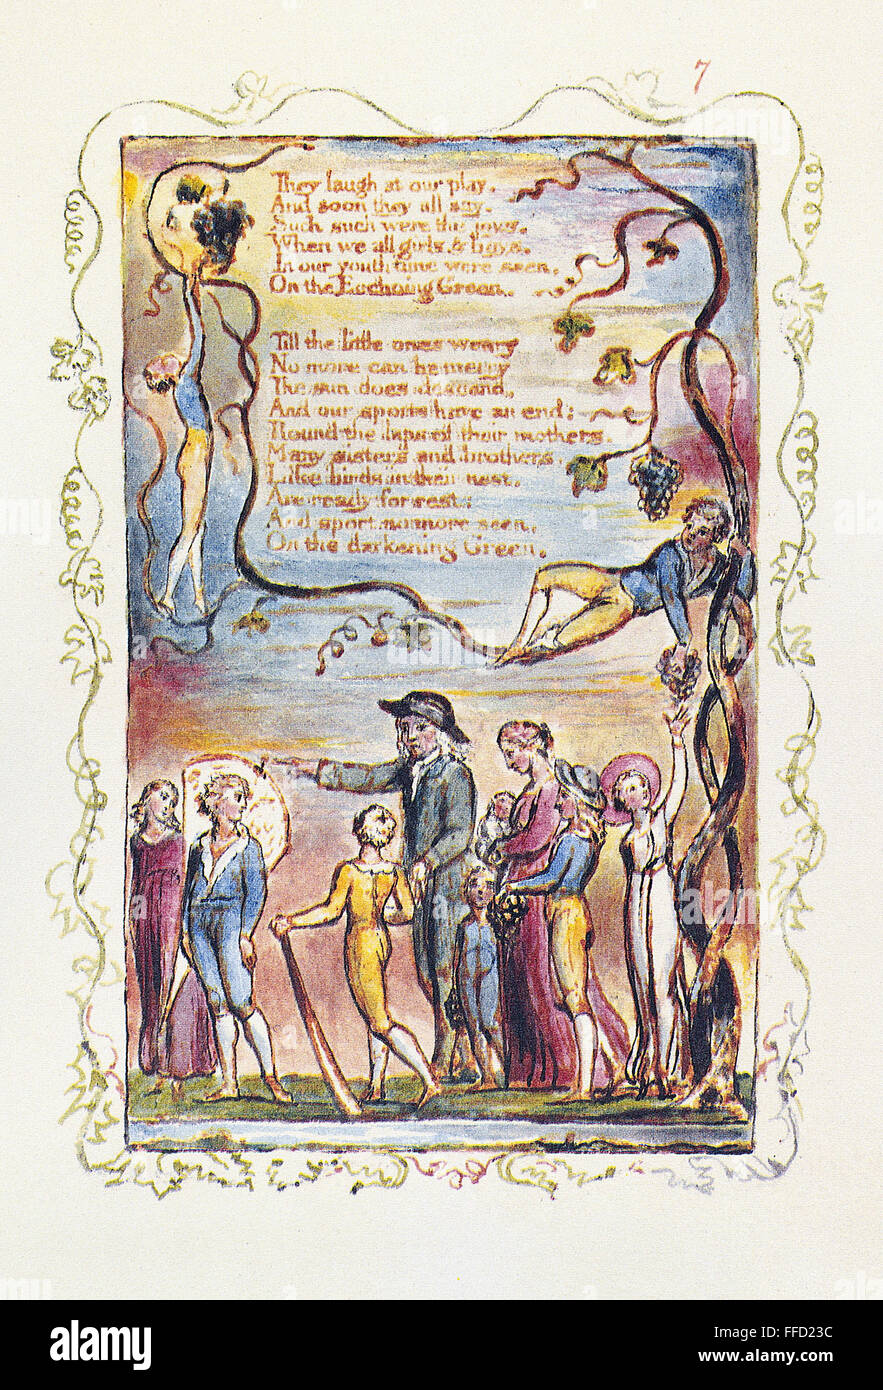 7
They laugh at our play,
And soon they all say,
Such such were the joys,
When we all girls & boys,
In our youth time were seen,
On the Ecchoing Green.
Till the little ones weary
No more can be merry
The sun does descend,
And our sports have an end:
Round the laps of their mothers,
Many sisters and brothers,
Like birds in their nest,
Are ready for rest:
And sport no more seen,
On the darkening Green.
alamy
alamy stock photo
FFD23C
www.alamy.com